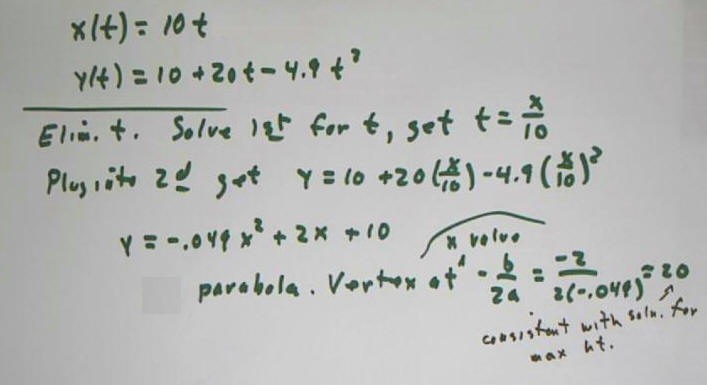 x(t) = 10t
y(t) = 10 + 20t - 4.9t²
Elim. t. Solve 1st for t, get t = x/10
Plug into 2d get y = 10 + 20(x/10) - 4.9(x/10)²
y = -.049x² + 2x + 10
x value
parabola. Vertex at ^ - b/2a = -2/2(-.049) = 20
consistent with soln. for
max ht.